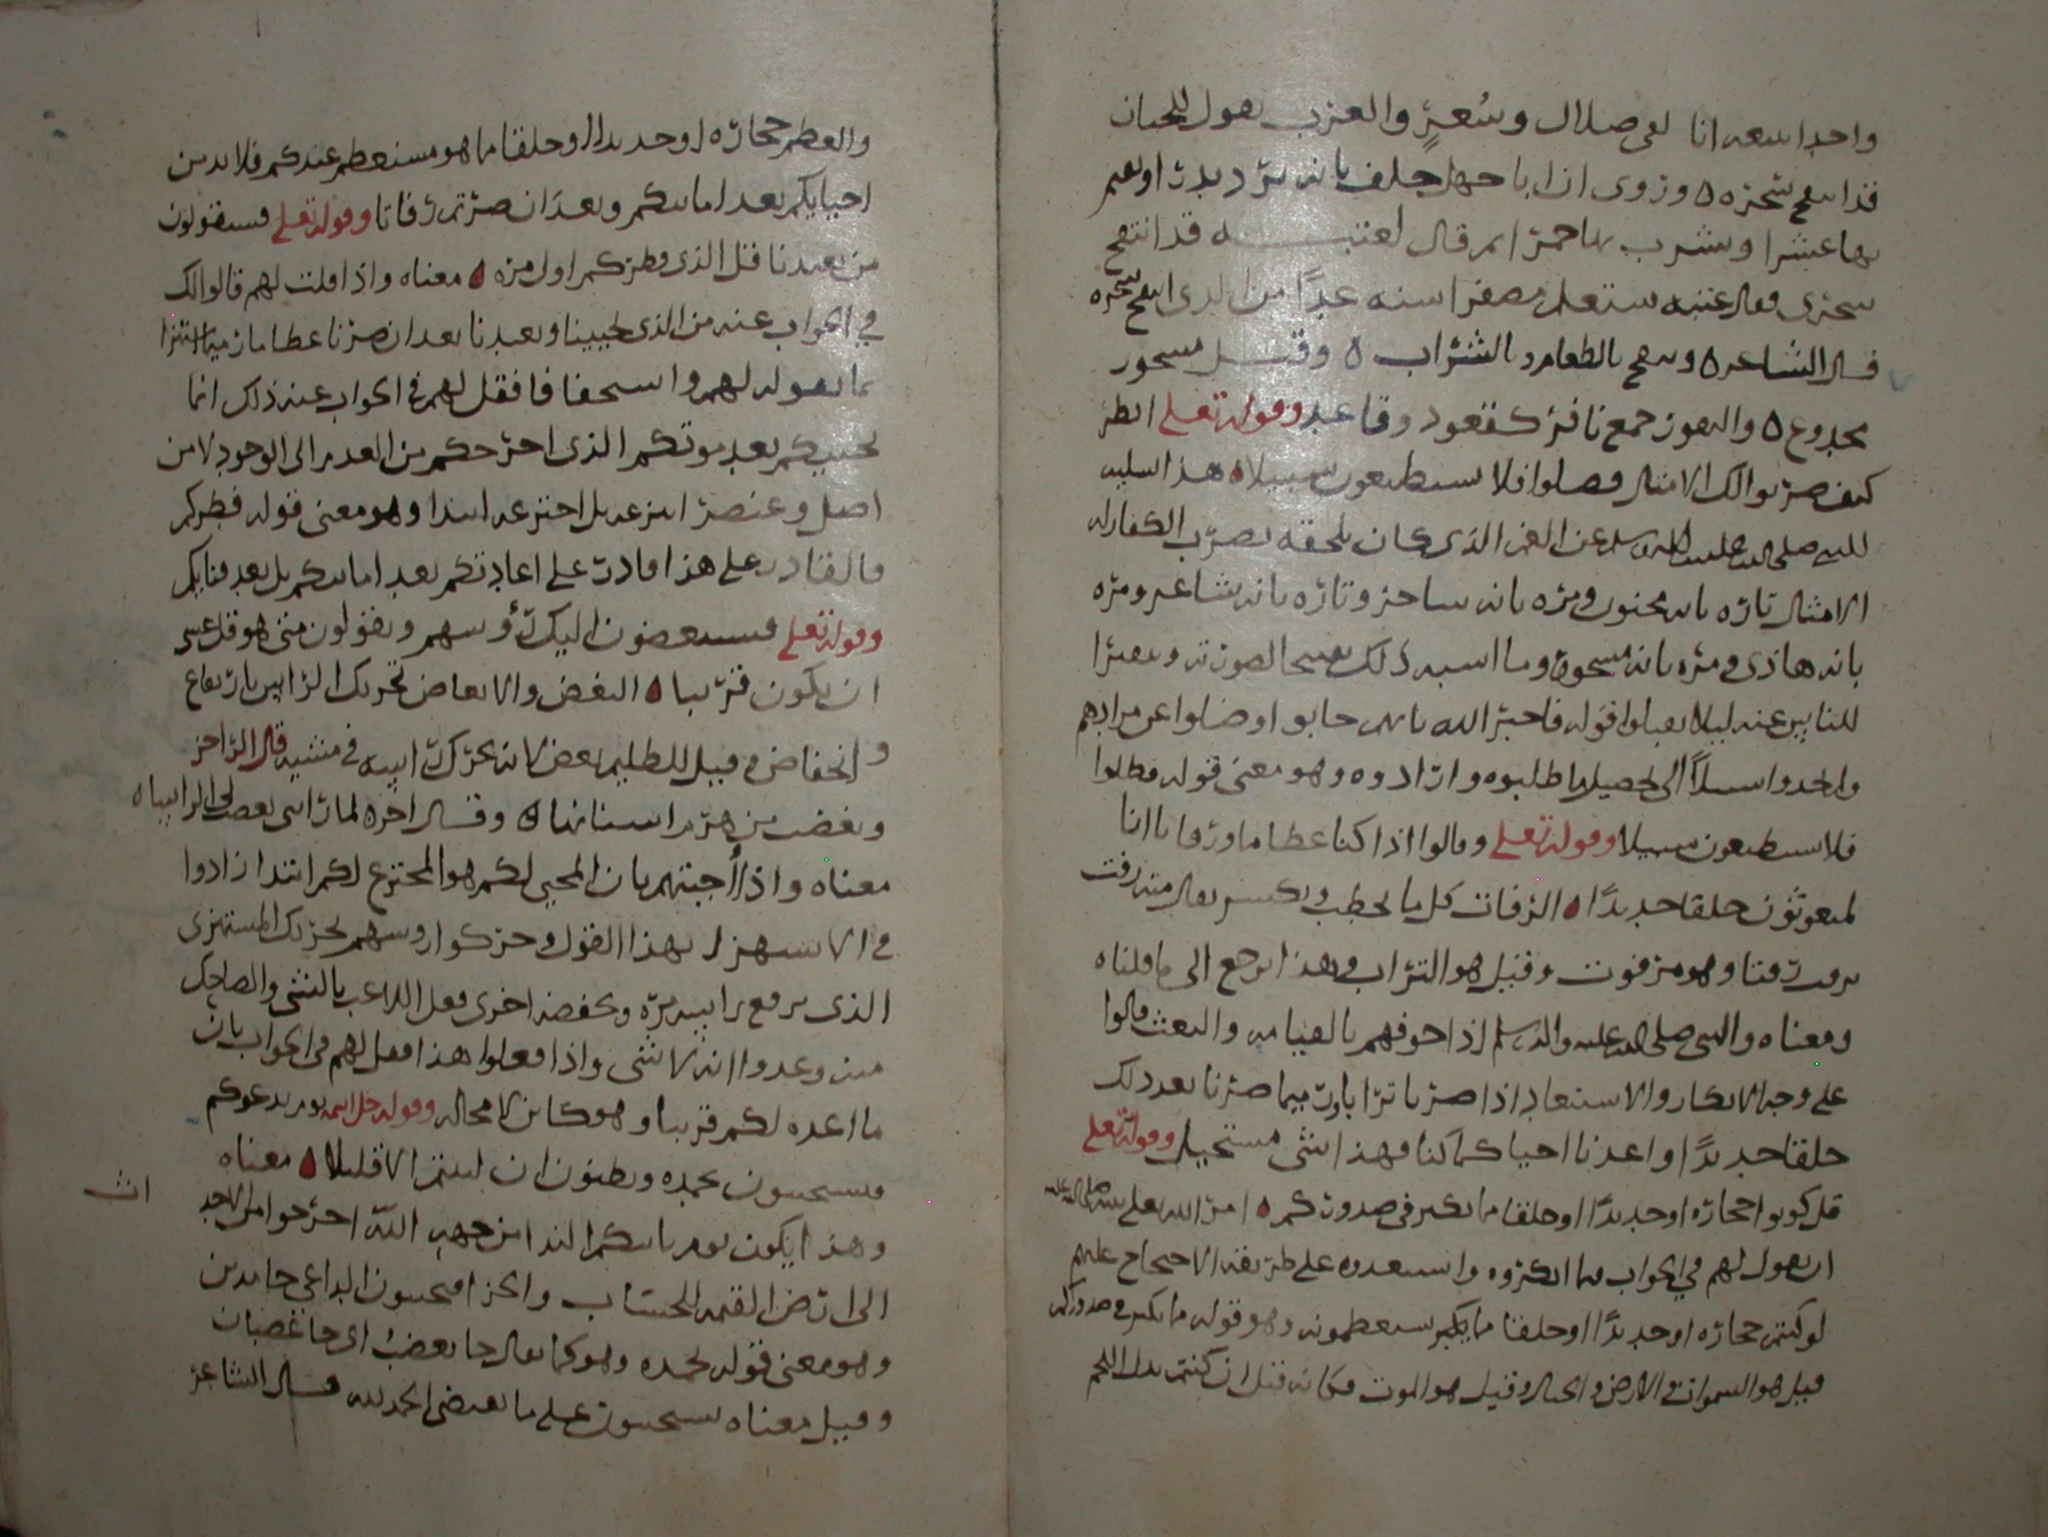 واحدا نتبعه انا لفي ضلال وسُعُرٍ والعرب تقول للجبان
قد انتفخ سحره ٥ وروى ان ابا جهل حلف بانه يرد بدرا ويقيم
بها عشرا ويشرب بها خمرا ثم قال لعتبـــه قد انتفخ
سحرك فقال عتبه ستعلم مصفر استه غدًا من الذى انتفخ سحره
قال الشاعر ٥ ويسحر بالطعام وبالشراب ٥ وقيل مسحور
مخدوع ٥ والنفور جمع نافر كقعود وقاعد وقوله تعلى انظر
كيف ضربوا لك الامثال فضلوا فلا يستطيعون سبيلا ٥ هذا تسليه
للنبي صلى الله عليه وآله وسلم عن الغم الذى كان يلحقه بضرب الكفار له
الامثال تاره بانه مجنون ومره بانه ساحر وتاره بانه شاعر ومره
بانه هاذى ومره بانه مسحور وما اشبه ذلك تقبيحا لصورته وتنفيرا
للناس عنه ليلا يقبلوا قوله فاخبر الله بانهم خابوا وضلوا عن مرادهم
ولم يجدوا سبيلاً الى تحصيل ما طلبوه وارادوه وهو معنى قوله فضلوا
فلا يستطيعون سبيلا وقوله تعلى وقالوا اذا كنا عظاما ورفاتا انا
لمبعوثون خلقا جديدًا ٥ الرفات كل ما يحطم ويكسر يقال منه رفت
يرفت رفتا وهو مرفوت وقيل هو التراب وهذا يرجع الى ما قلناه
ومعناه والنبي صلى الله عليه وآله وسلم اذا خوفهم بالقيامه والبعث قالوا
على وجه الانكار والاستبعاد اذا صرنا ترابا ورميما صرنا بعد ذلك
خلقا جديدًا واعدنا احيا كما كنا فهذا شى مستحيل وقوله تعلى
قل كونوا حجاره او حديدًا او خلقا مما يكبر في صدوركم ٥ امر الله تعلى نبيه صلى الله عليه
ان يقول لهم في الجواب عما انكروه واستبعدوه على طريقه الاحتجاج عليهم
لو كنتم حجاره او حديدًا او خلقا مما يكبر ستعظمونه وهو قوله مما يكبر في صدوركم
قيل هو السموات والارض والجبال وقيل هو الموت فكانه قيل ان كنتم بدل اللحم
والعظم حجاره او حديدا او خلقا مما هو مستعظم عندكم فلا بد من
احيايكم بعد اماتتكم وبعد ان صرتم رفاتا وقوله تعلى فسيقولون
من يعيدنا قل الذى فطركم اول مره ٥ معناه واذا قلت لهم قالوا لك
في الجواب عنه من الذى يحيينا ويعيدنا بعد ان صرنا عظاما رميما استهزا
بما تقوله لهم واستخفافا فقل لهم في الجواب عند ذلك انما
يحييكم بعد موتكم الذى اخرجكم من العدم الى الوجود لا من
اصل وعنصر انتزعه بل اخترعه ابتدا وهو معنى قوله فطركم
فالقادر على هذا قادر على اعادتكم بعد اماتتكم بل بعد فنايكم
وقوله تعلى فسينغضون اليك رؤسهم ويقولون متى هو قل عسى
ان يكون قريبا ٥ النغض والانغاض تحريك الراس بارتفاع
وانخفاض وقيل للظليم نغض لانه يحرك راسه في مشيه قال الراجز
ونغضت من هرم اسنانها ٥ وقال اخره لما راتني نغضت لي الراسا ٥
معناه واذا أجبتهم بان المحيي لكم هو المخترع لكم ابتدا زادوا
في الاستهزا بهذا القول وحركوا روسهم تحريك المستهزى
الذى يرفع راسه مره ويخفضه اخرى فعل اللاعب بالشى والضاحك
منه وعدوا انه لا شى واذا فعلوا هذا فقل لهم في الجواب بان
ما اعده لكم قريبا وهو كاين لا محاله وقوله جل اسمه يوم يدعوكم
فتستجيبون بحمده وتظنون ان لبثتم الا قليلا ٥ معناه
وهذا يكون يوم ياتيكم الندا من جهه الله اخرجوا من الاجداث
الى ارض القيمه للحساب والجزا فتجيبون الداعى حامدين
وهو معنى قوله بحمده وهو كما يقال جا بغضبٍ اى جا غضبان
وقيل معناه تستجيبون على ما يقتضى الحمد لله قال الشاعر